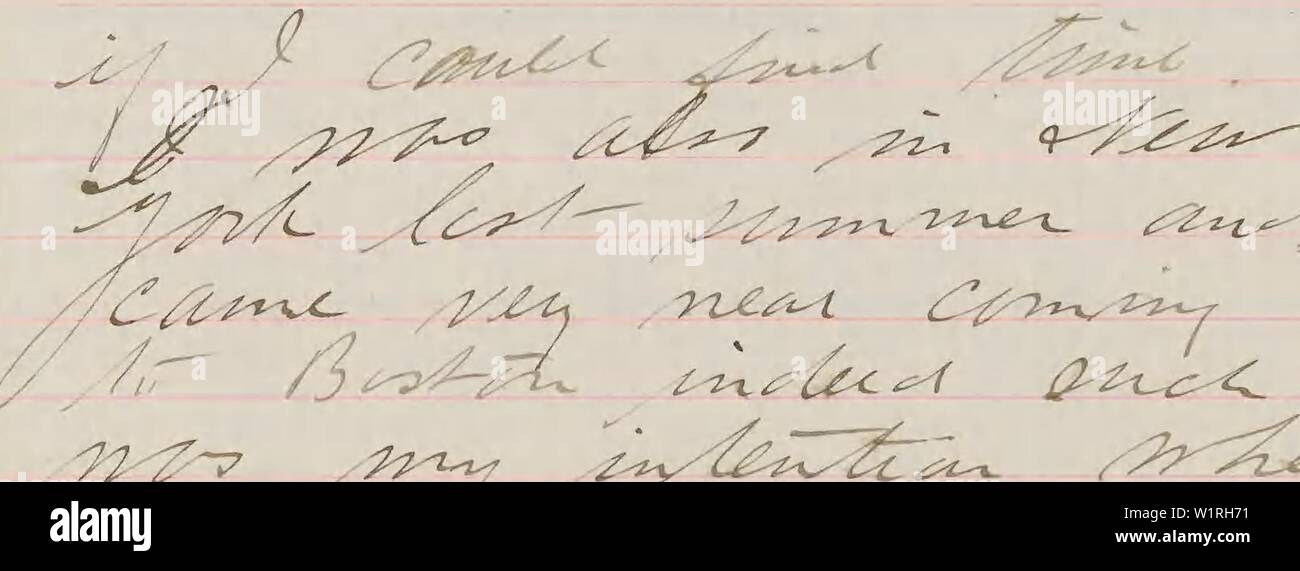 if I could find time.
I was also in New
York last summer and
came very near coming
to Boston indeed such
was my intention whe
alamy
Image ID: W1RH71
www.alamy.com